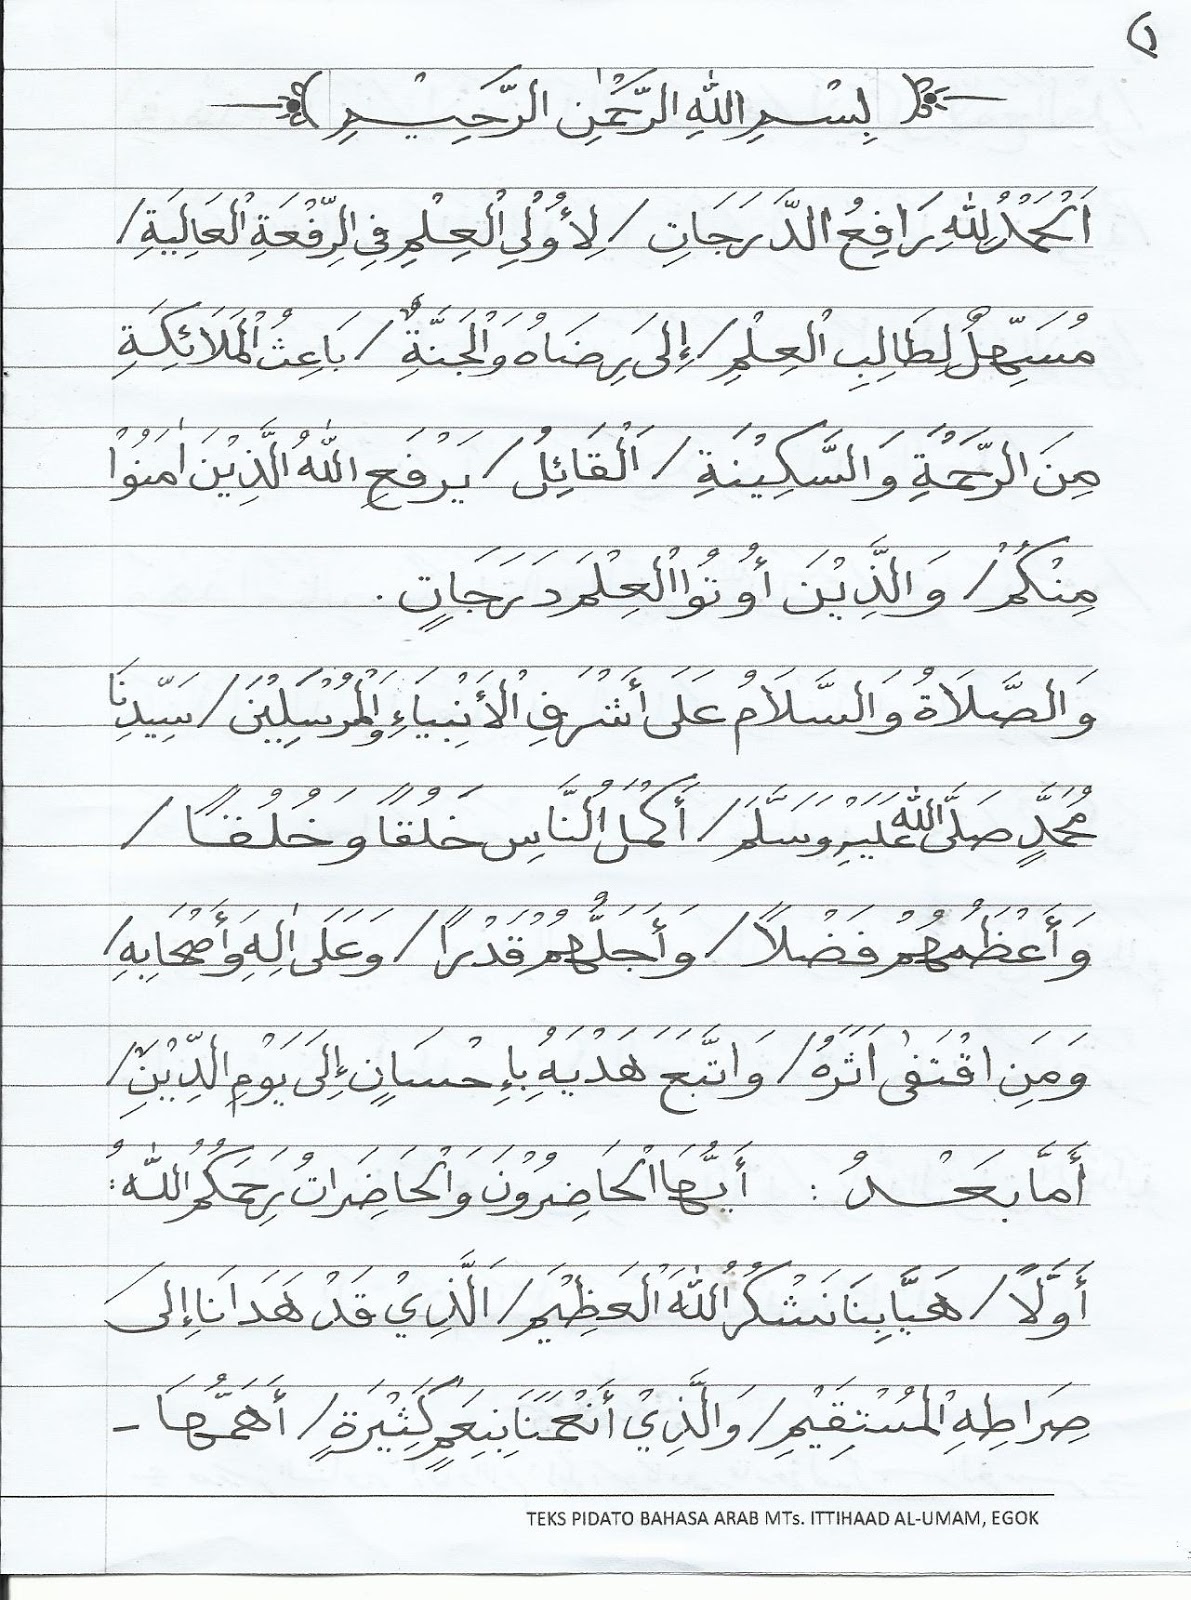 ١
بِسْــمِ اللّٰهِ الرَّحْمٰنِ الرَّحِيْــمِ
اَلْحَمْدُ لِلّٰهِ رَافِعُ الدَّرَجَاتِ / لِأُوْلِي الْعِلْمِ فِي الرِّفْعَةِ الْعَالِيَةِ /
مُسَهِّلُ لِطَالِبِ الْعِلْمِ / إِلَى رِضَاهُ وَالْجَنَّةِ / بَاعِثُ الْمَلَائِكَةِ
مِنَ الرَّحْمَةِ وَالسَّكِيْنَةِ / اَلْقَائِلُ / يَرْفَعِ اللّٰهُ الَّذِيْنَ اٰمَنُوْا
مِنْكُمْ / وَالَّذِيْنَ أُوْتُوا الْعِلْمَ دَرَجَاتٍ .
وَالصَّلَاةُ وَالسَّلَامُ عَلَى أَشْرَفِ الْأَنْبِيَاءِ وَالْمُرْسَلِيْنَ / سَيِّدِنَا
مُحَمَّدٍ صَلَّى اللّٰهُ عَلَيْهِ وَسَلَّمَ / أَكْمَلُ النَّاسِ خَلْقًا وَخُلُقًــا /
وَأَعْظَمُهُمْ فَضْلًا / وَأَجَلُّهُمْ قَدْرًا / وَعَلَى اٰلِهِ وَأَصْحَابِهِ /
وَمَنِ اقْتَفٰى اَثَرَهُ / وَاتَّبَعَ هَدْيَهُ بِإِحْسَانٍ إِلَى يَوْمِ الدِّيْنِ /
أَمَّا بَعْــدُ : أَيُّهَا الْحَاضِرُوْنَ وَالْحَاضِرَاتُ رَحِمَكُمُ اللّٰهُ :
أَوَّلًا / هَيَّا بِنَا نَشْكُرُ اللّٰهَ الْعَظِيْمَ / اَلَّذِيْ قَدْ هَدَانَا إِلَى
صِرَاطِهِ الْمُسْتَقِيْمِ / وَالَّذِيْ أَنْعَمَنَا بِنِعَمٍ كَثِيْرَةٍ / أَهَمُّهَا -
TEKS PIDATO BAHASA ARAB MTs. ITTIHAAD AL-UMAM, EGOK